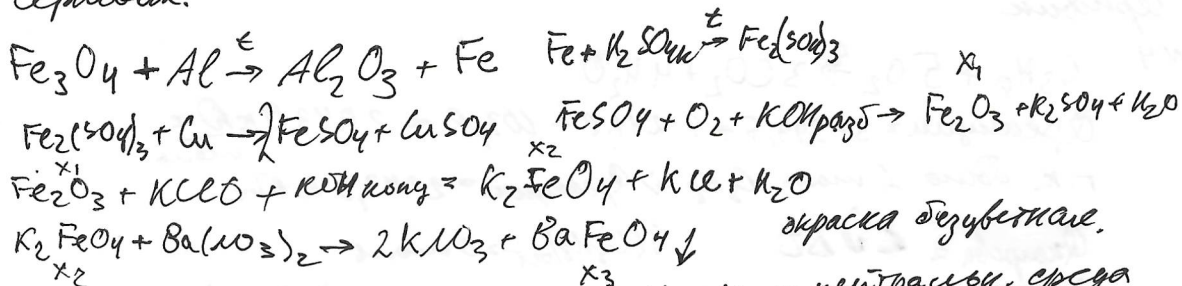 Fe₃O₄ + Al →t Al₂O₃ + Fe   Fe + H₂SO₄к →t Fe₂(SO₄)₃
Fe₂(SO₄)₃ + Cu → 2FeSO₄ + CuSO₄   FeSO₄ + O₂ + KOHразб → Fe₂O₃ + K₂SO₄ + H₂O
x₁
x₁   x₂
Fe₂O₃ + KClO + KOH конц = K₂FeO₄ + KCl + H₂O
K₂FeO₄ + Ba(NO₃)₂ → 2KNO₃ + BaFeO₄↓   окраска безцветная.
x₂   x₃   среда